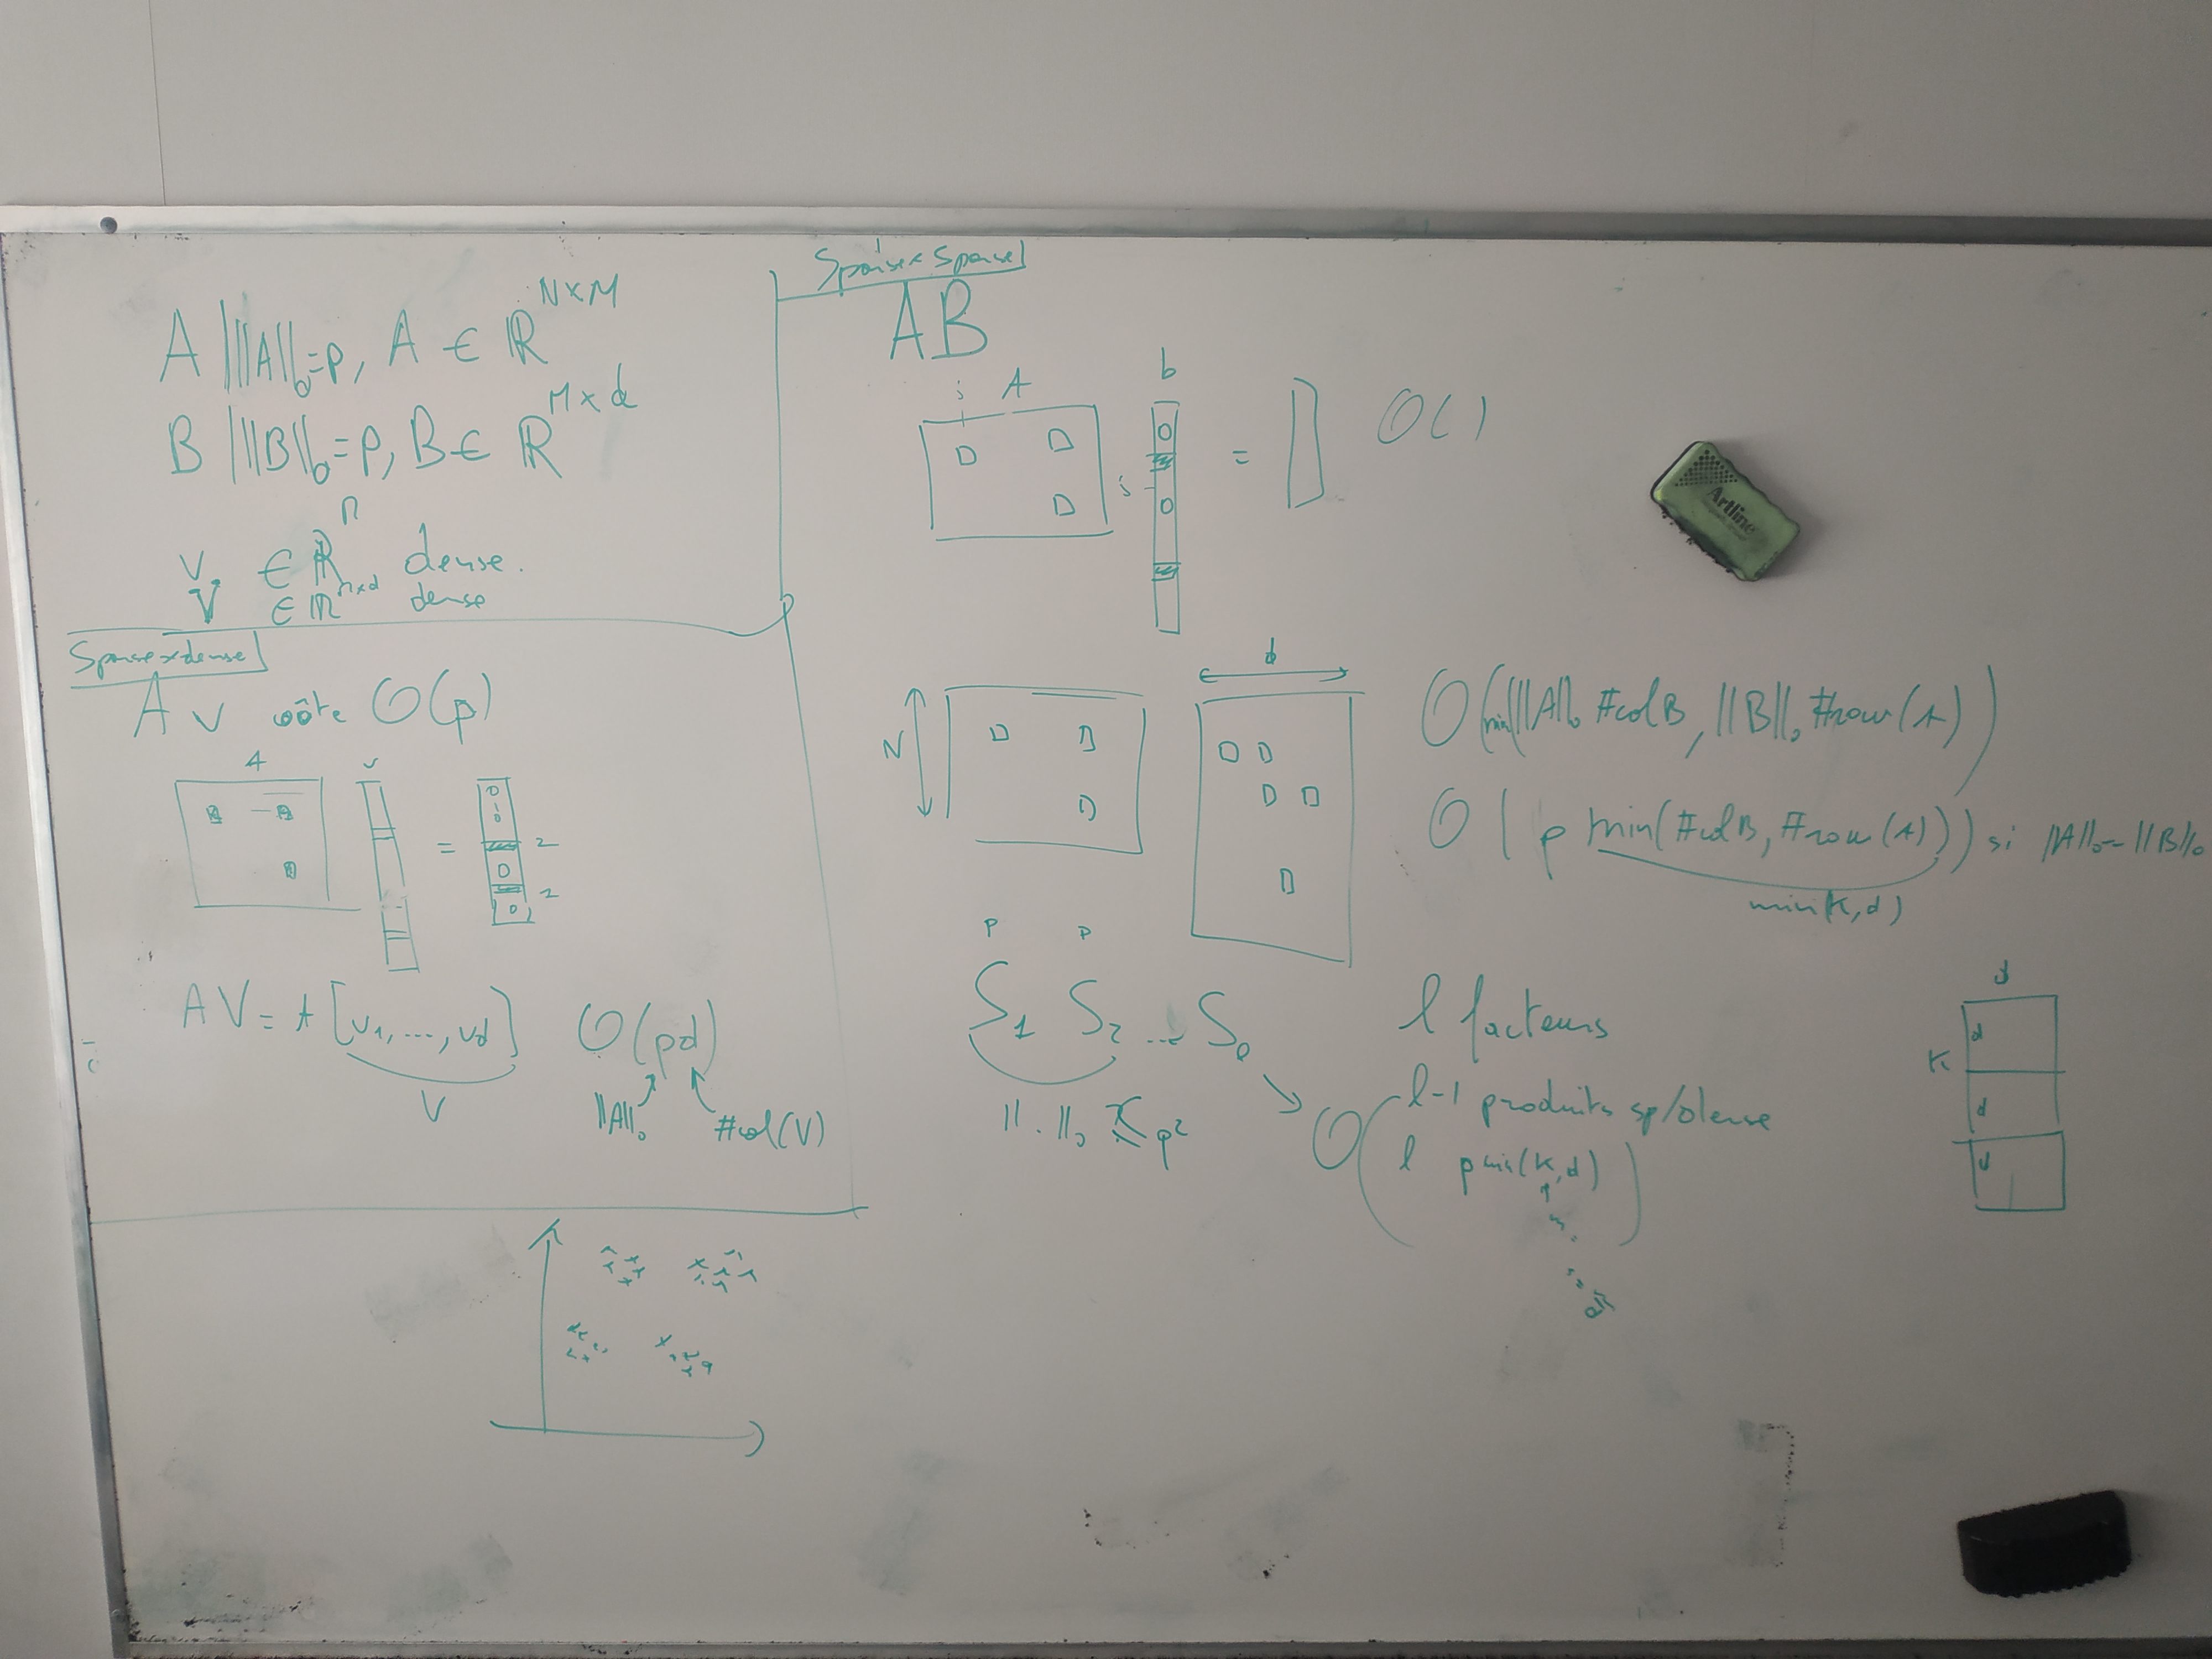 A | ||A||₀ = p, A ∈ ℝ^{N×M}
B | ||B||₀ = p, B ∈ ℝ^{M×d}
v ∈ ℝⁿ dense.
V ∈ ℝ^{n×d} dense
Sparse×dense
A v coûte O(p)
A v
=
2
2
AV = A [v₁, ..., v_d] O(pd)
V ||A||₀ #col(V)
Sparse×Sparse
AB
i A b
i = O( )
N d
O(min(||A||₀ #col B, ||B||₀ #row(A))
O( p min(#col B, #row(A))) si ||A||₀ ~ ||B||₀
min(K,d)
p p
S₁ S₂ ... S_l l facteurs
l-1 produits sp/dense
||.||₀ ≤ p²
O( l p min(K,d) )
d
K d
d
d
Artline